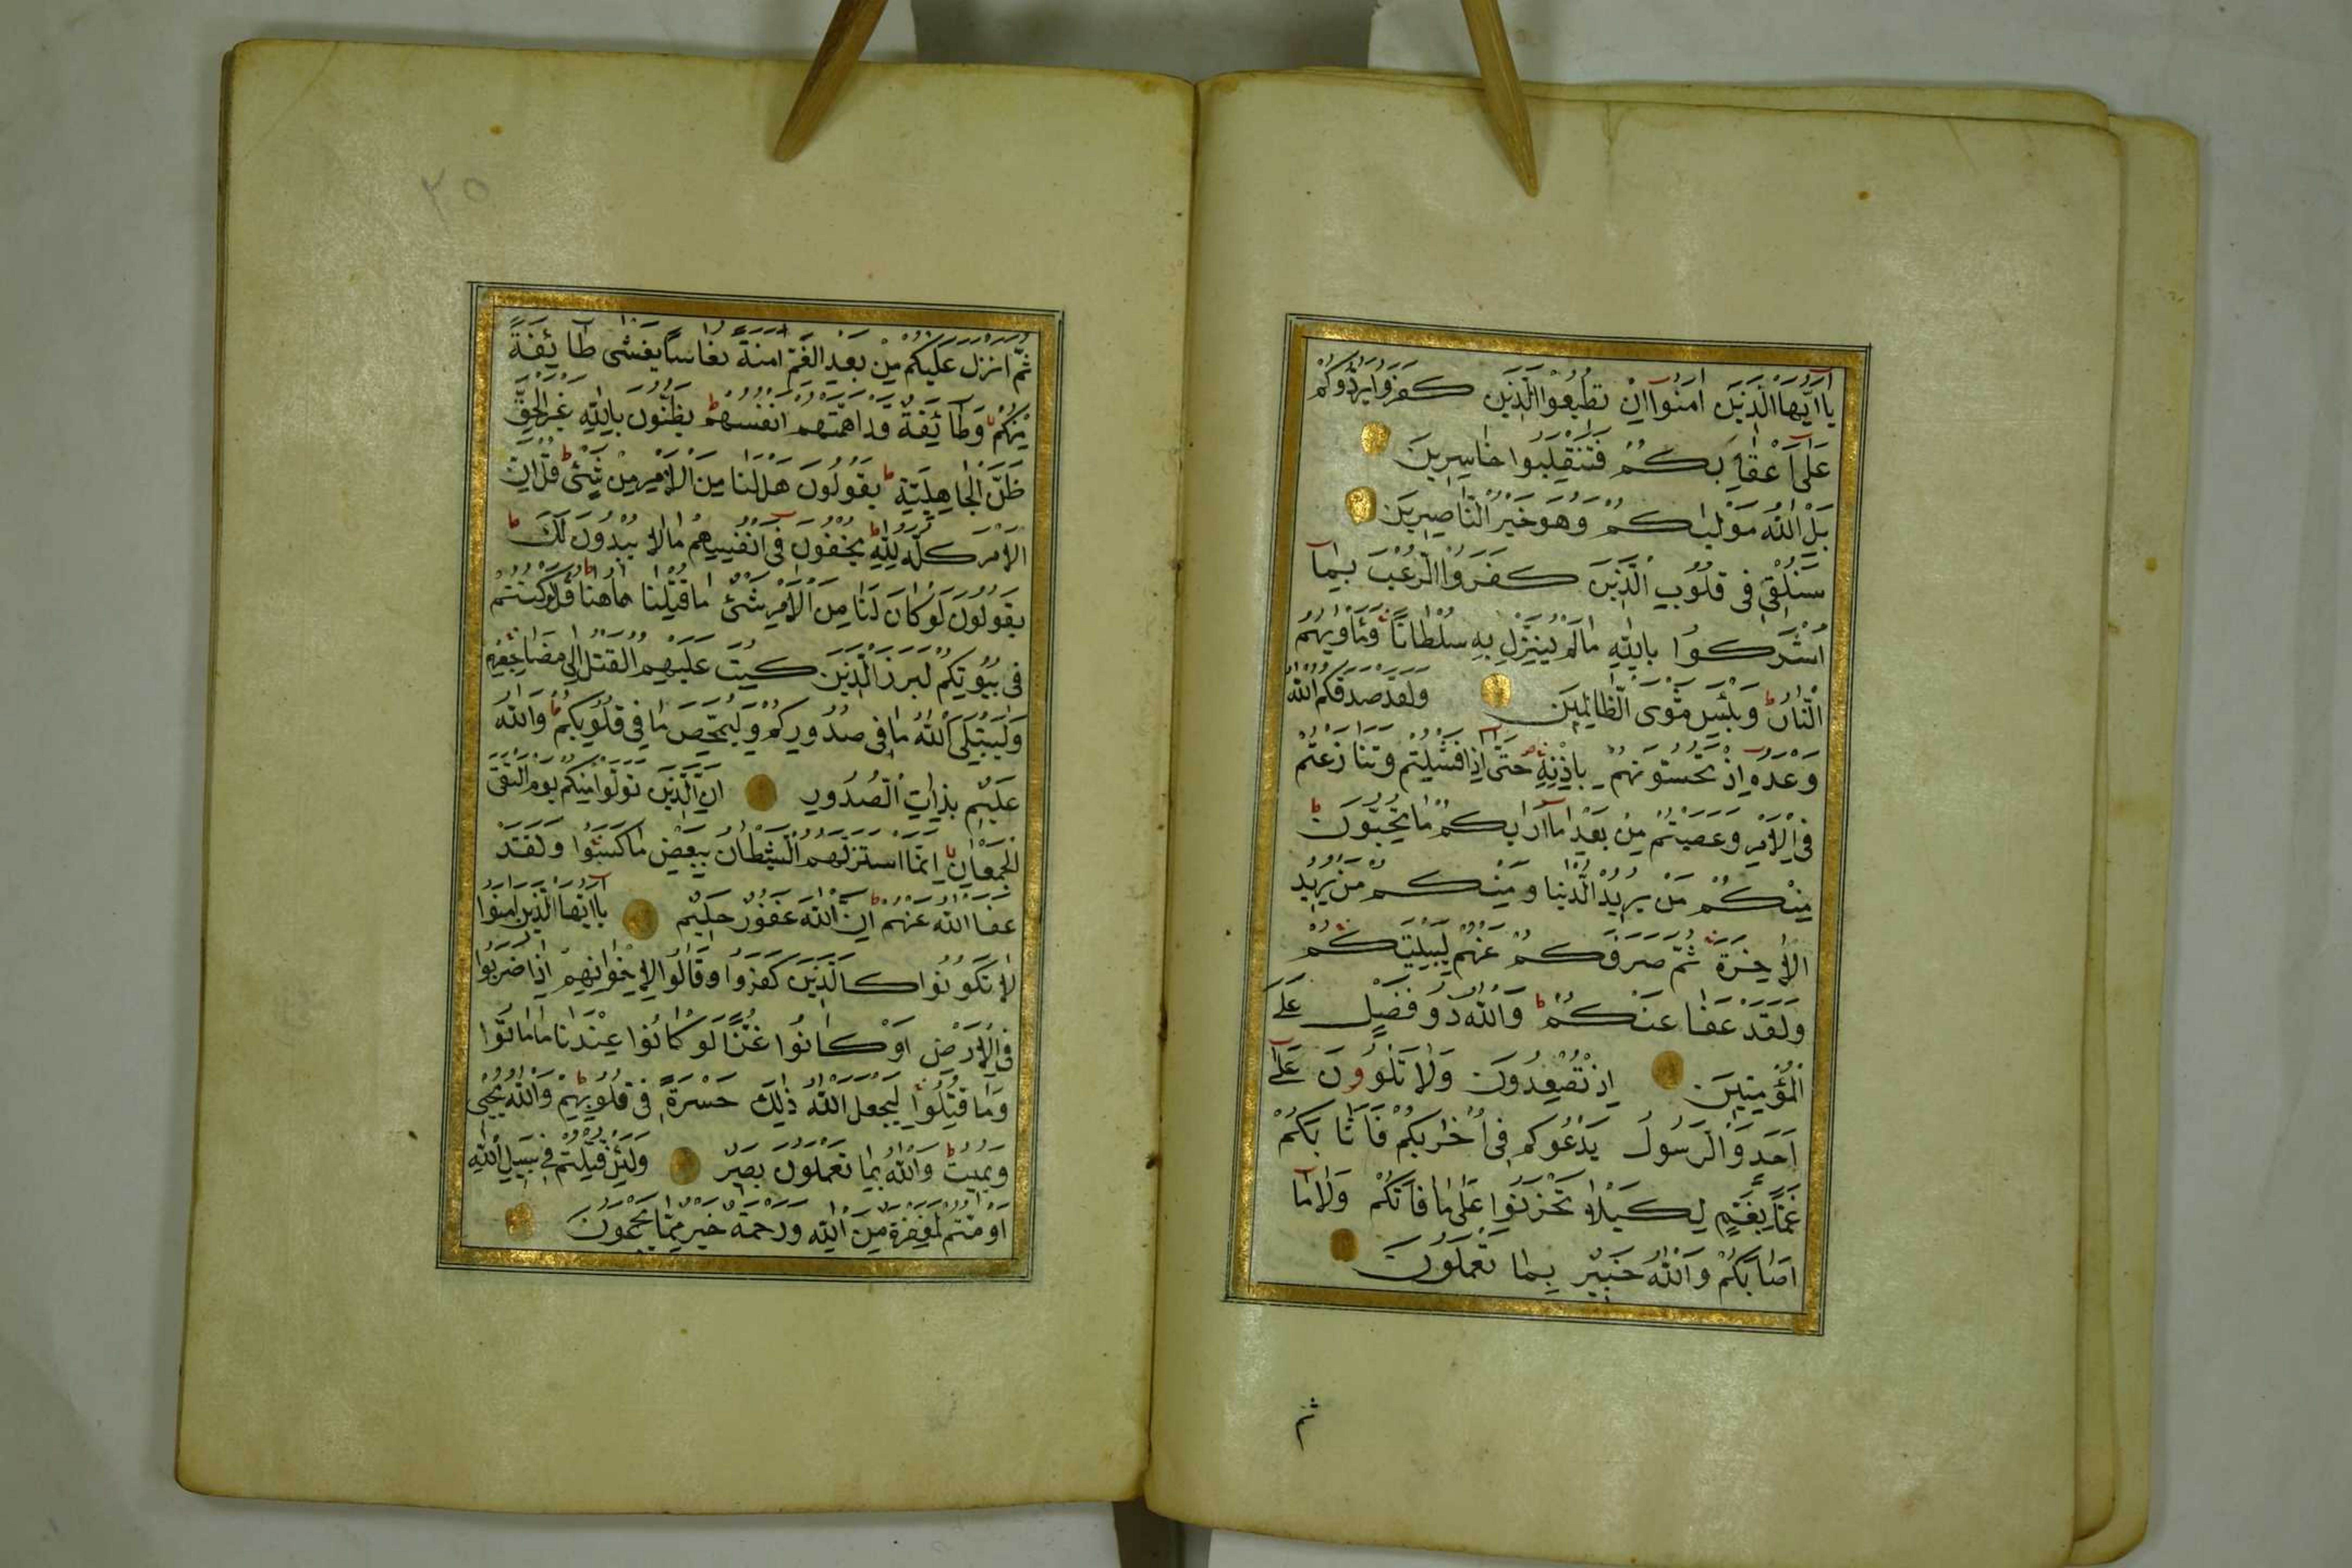 يَا اَيُّهَا الَّذِينَ اٰمَنُوا اِنْ تُطِيعُوا الَّذِينَ كَفَرُوا يَرُدُّوكُمْ
عَلٰى اَعْقَابِكُمْ فَتَنْقَلِبُوا خَاسِرِينَ
بَلِ اللّٰهُ مَوْلٰيكُمْ وَهُوَ خَيْرُ النَّاصِرِينَ
سَنُلْقِي فِي قُلُوبِ الَّذِينَ كَفَرُوا الرُّعْبَ بِمَا
اَشْرَكُوا بِاللّٰهِ مَا لَمْ يُنَزِّلْ بِهِ سُلْطَانًا وَمَأْوٰيهُمُ
النَّارُ ط وَبِئْسَ مَثْوَى الظَّالِمِينَ وَلَقَدْ صَدَقَكُمُ اللّٰهُ
وَعْدَهُ اِذْ تَحُسُّونَهُمْ بِاِذْنِهِ حَتّٰى اِذَا فَشِلْتُمْ وَتَنَازَعْتُمْ
فِي الْاَمْرِ وَعَصَيْتُمْ مِنْ بَعْدِ مَا اَرٰيكُمْ مَا تُحِبُّونَ ط
مِنْكُمْ مَنْ يُرِيدُ الدُّنْيَا وَمِنْكُمْ مَنْ يُرِيدُ
الْاٰخِرَةَ ثُمَّ صَرَفَكُمْ عَنْهُمْ لِيَبْتَلِيَكُمْ
وَلَقَدْ عَفَا عَنْكُمْ ط وَاللّٰهُ ذُو فَضْلٍ عَلَى
الْمُؤْمِنِينَ اِذْ تُصْعِدُونَ وَلَا تَلْوُونَ عَلٰى
اَحَدٍ وَالرَّسُولُ يَدْعُوكُمْ فِي اُخْرٰيكُمْ فَاَثَابَكُمْ
غَمًّا بِغَمٍّ لِكَيْلَا تَحْزَنُوا عَلٰى مَا فَاتَكُمْ وَلَا مَا
اَصَابَكُمْ وَاللّٰهُ خَبِيرٌ بِمَا تَعْمَلُونَ
ثم
٢٥
ثُمَّ اَنْزَلَ عَلَيْكُمْ مِنْ بَعْدِ الْغَمِّ اَمَنَةً نُعَاسًا يَغْشٰى طَائِفَةً
مِنْكُمْ وَطَائِفَةٌ قَدْ اَهَمَّتْهُمْ اَنْفُسُهُمْ ط يَظُنُّونَ بِاللّٰهِ غَيْرَ الْحَقِّ
ظَنَّ الْجَاهِلِيَّةِ ط يَقُولُونَ هَلْ لَنَا مِنَ الْاَمْرِ مِنْ شَيْئٍ ط قُلْ اِنَّ
الْاَمْرَ كُلَّهُ لِلّٰهِ ط يُخْفُونَ فِي اَنْفُسِهِمْ مَا لَا يُبْدُونَ لَكَ ط
يَقُولُونَ لَوْ كَانَ لَنَا مِنَ الْاَمْرِ شَيْئٌ مَا قُتِلْنَا هٰهُنَا ط قُلْ لَوْ كُنْتُمْ
فِي بُيُوتِكُمْ لَبَرَزَ الَّذِينَ كُتِبَ عَلَيْهِمُ الْقَتْلُ اِلٰى مَضَاجِعِهِمْ
وَلِيَبْتَلِيَ اللّٰهُ مَا فِي صُدُورِكُمْ وَلِيُمَحِّصَ مَا فِي قُلُوبِكُمْ ط وَاللّٰهُ
عَلِيمٌ بِذَاتِ الصُّدُورِ اِنَّ الَّذِينَ تَوَلَّوْا مِنْكُمْ يَوْمَ الْتَقَى
الْجَمْعَانِ اِنَّمَا اسْتَزَلَّهُمُ الشَّيْطَانُ بِبَعْضِ مَا كَسَبُوا وَلَقَدْ
عَفَا اللّٰهُ عَنْهُمْ ط اِنَّ اللّٰهَ غَفُورٌ حَلِيمٌ يَا اَيُّهَا الَّذِينَ اٰمَنُوا
لَا تَكُونُوا كَالَّذِينَ كَفَرُوا وَقَالُوا لِاِخْوَانِهِمْ اِذَا ضَرَبُوا
فِي الْاَرْضِ اَوْ كَانُوا غُزًّا لَوْ كَانُوا عِنْدَنَا مَا مَاتُوا
وَمَا قُتِلُوا لِيَجْعَلَ اللّٰهُ ذٰلِكَ حَسْرَةً فِي قُلُوبِهِمْ ط وَاللّٰهُ يُحْيِي
وَيُمِيتُ ط وَاللّٰهُ بِمَا تَعْمَلُونَ بَصِيرٌ وَلَئِنْ قُتِلْتُمْ فِي سَبِيلِ اللّٰهِ
اَوْ مُتُّمْ لَمَغْفِرَةٌ مِنَ اللّٰهِ وَرَحْمَةٌ خَيْرٌ مِمَّا يَجْمَعُونَ